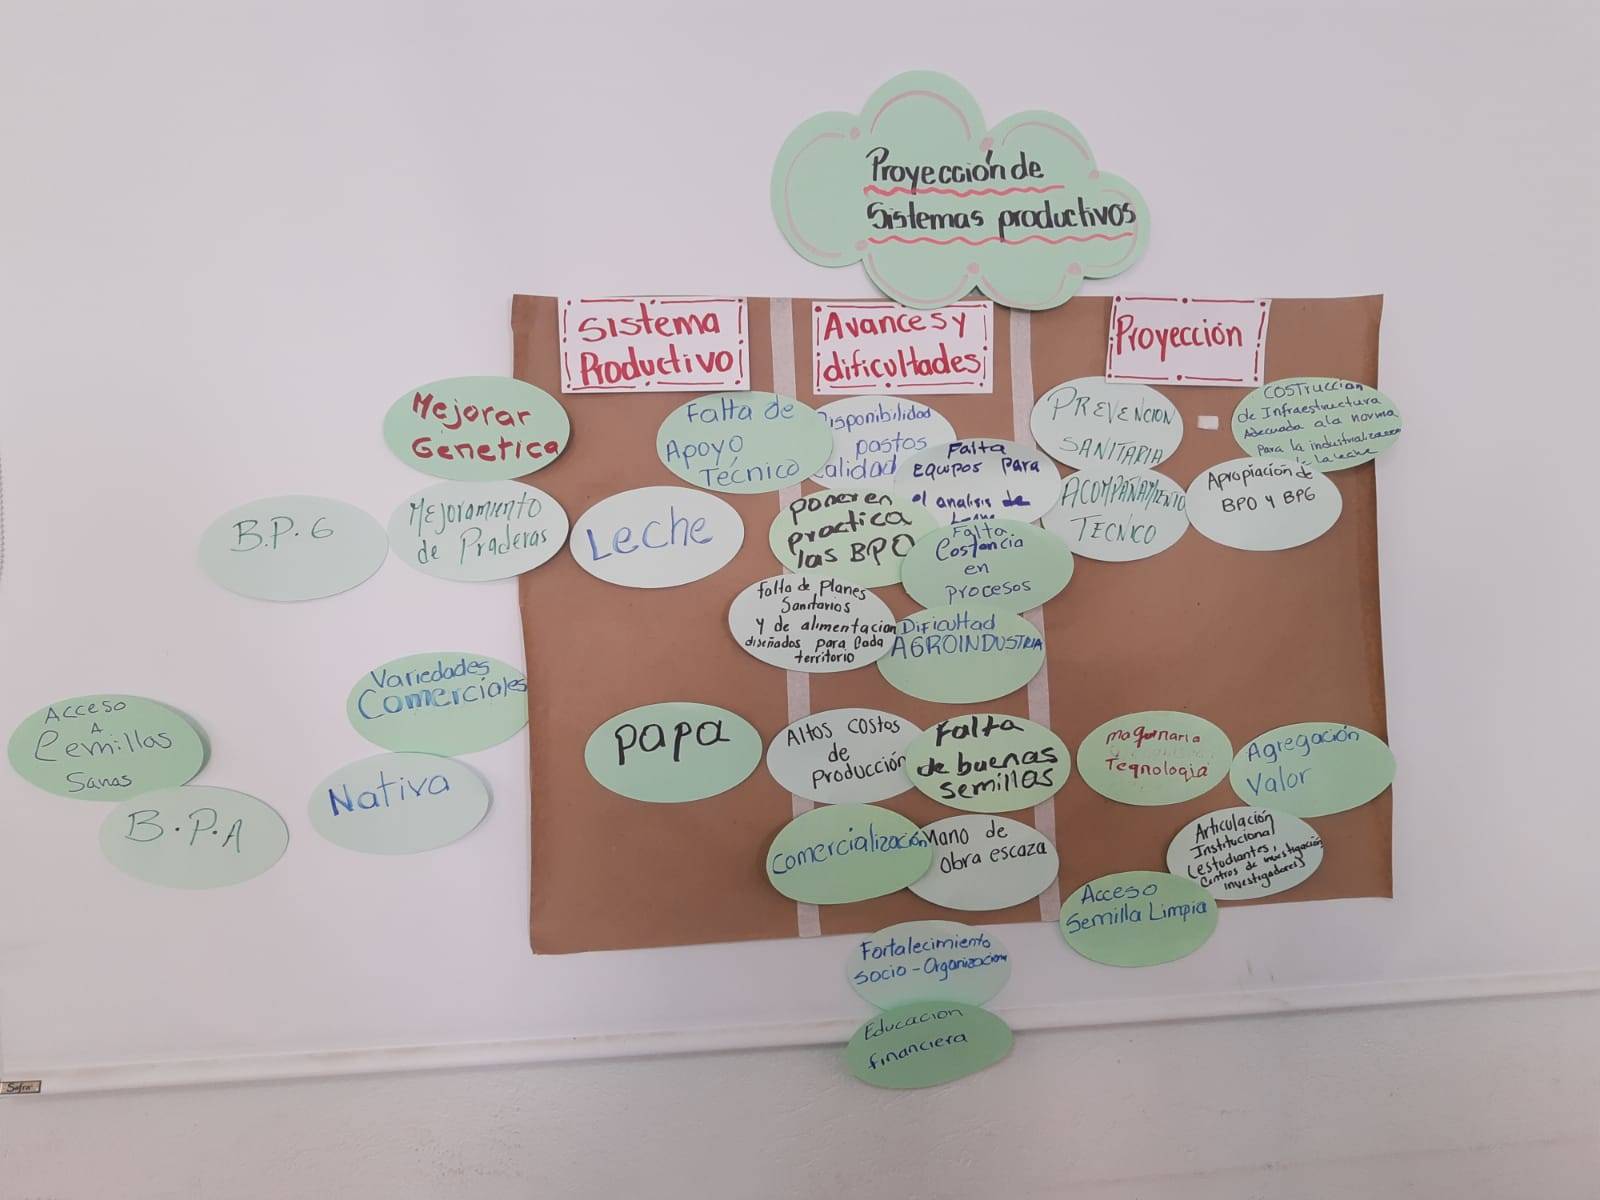 Proyección de
Sistemas productivos
Sistema
Productivo
Avances y
dificultades
Proyección
Mejorar
Genetica
B.P.G
Mejoramiento
de Praderas
Falta de
Apoyo
Técnico
Leche
Disponibilidad
pastos
calidad
Falta
Equipos para
el analisis de
Poner en
practica
las BPO
Falta
Costancia
en
procesos
falta de Planes
Sanitarios
y de alimentacion
diseñados para Cada
territorio
Dificultad
AGROINDUSTRIA
PREVENCION
SANITARIA
ACOMPAÑAMIENTO
TECNICO
COSTruccion
de Infraestructura
Adecuada a la norma
Para la industrializacion
la leche
Apropiación de
BPO y BPG
Variedades
Comerciales
Nativa
Acceso
A
Cemillas
Sanas
B.P.A
PAPA
Altos costos
de
Producción
Falta
de buenas
semillas
Comercialización
Mano de
Obra escaza
Fortalecimiento
Socio-Organizacion
Educacion
financiera
maquinaria
Teqnologia
Agregación
Valor
Articulación
Institucional
(estudiantes,
Centros de investigación
investigadores)
Acceso
Semilla Limpia